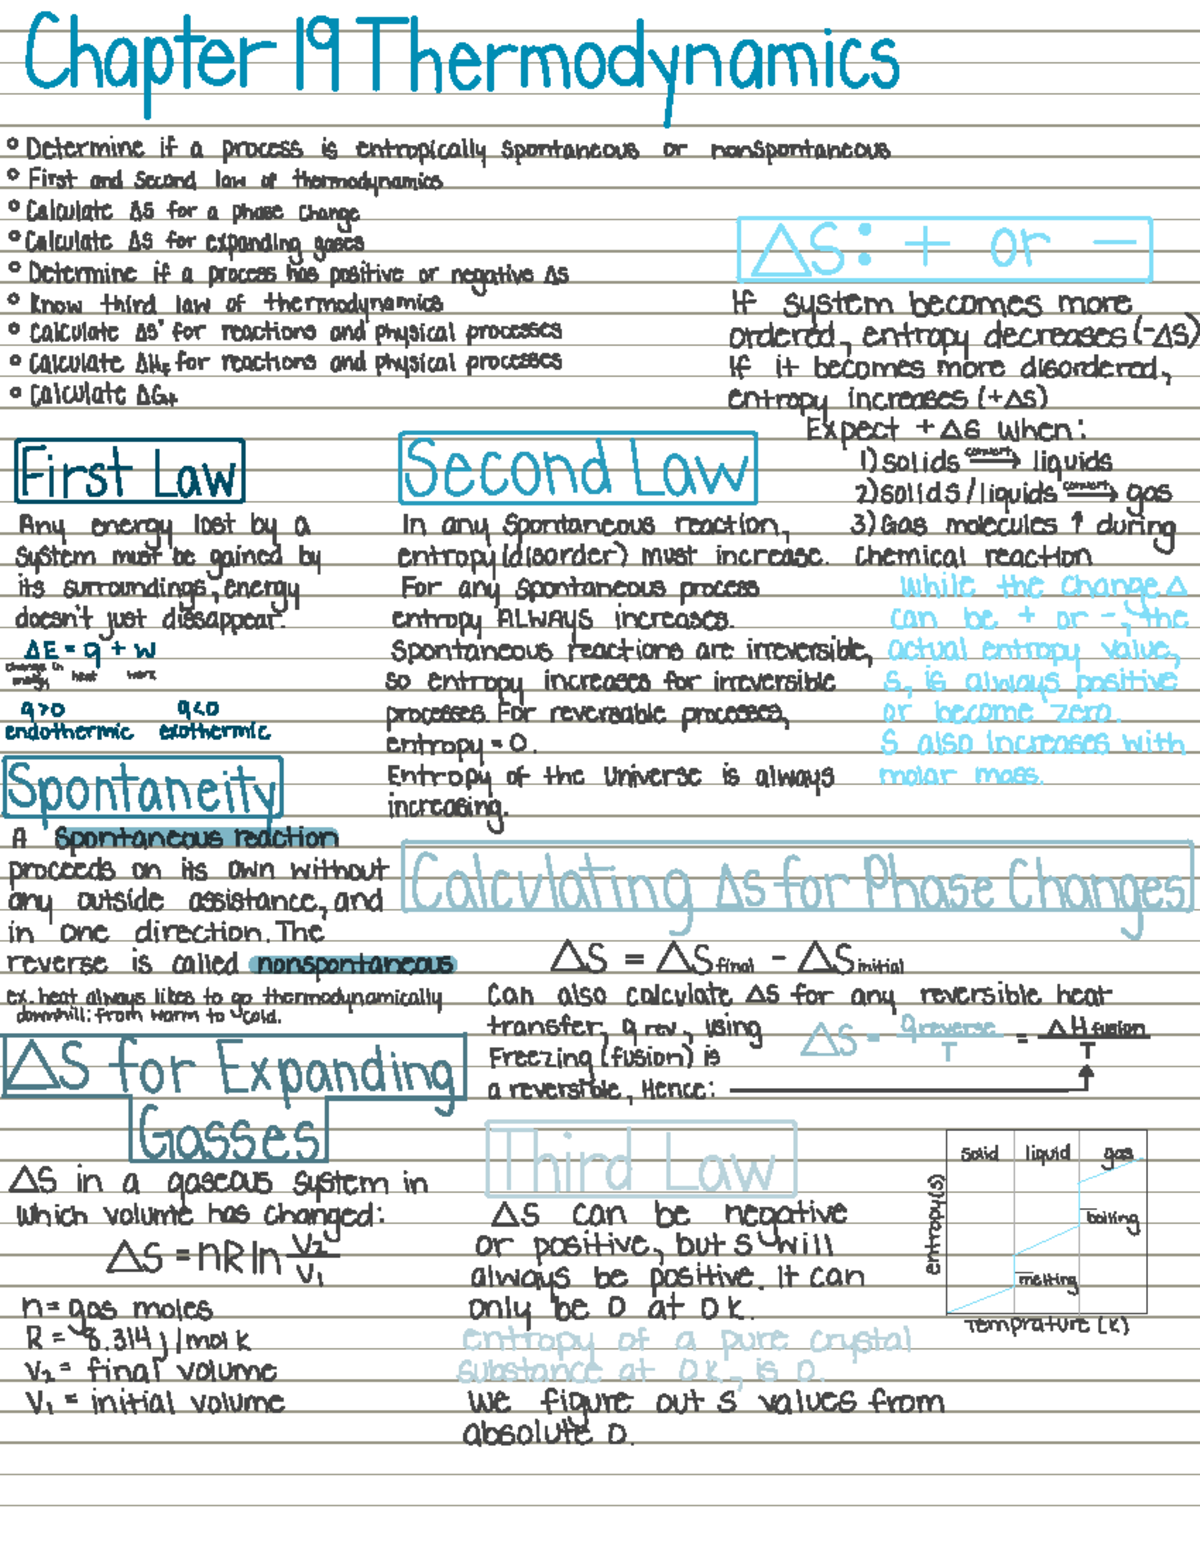 Chapter 19 Thermodynamics
° Determine if a process is entropically spontaneous or nonspontaneous
° First and Second law of thermodynamics
° Calculate ΔS for a phase change
° Calculate ΔS for expanding gases
° Determine if a process has positive or negative ΔS
° Know third law of thermodynamics
° Calculate ΔS° for reactions and physical processes
° Calculate ΔHf for reactions and physical processes
° Calculate ΔG
ΔS: + or -
If system becomes more
ordered, entropy decreases (-ΔS)
If it becomes more disordered,
entropy increases (+ΔS)
Expect +ΔS when:
1) solids convert → liquids
2) solids/liquids convert → gas
3) Gas molecules ↑ during
chemical reaction
While the change Δ
can be + or -, the
actual entropy value,
S, is always positive
or become zero.
S also increases with
molar mass.
First Law
Any energy lost by a
system must be gained by
its surroundings, energy
doesn't just dissappear.
ΔE = q + w
change in energy heat work
q>0 q<0
endothermic exothermic
Second Law
In any spontaneous reaction,
entropy (disorder) must increase.
For any spontaneous process
entropy ALWAYS increases.
Spontaneous reactions are irreversible,
so entropy increases for irreversible
processes. For reversable processes,
entropy = 0.
Entropy of the Universe is always
increasing.
Spontaneity
A spontaneous reaction
proceeds on its own without
any outside assistance, and
in one direction. The
reverse is called nonspontaneous
ex. heat always likes to go thermodynamically
downhill: from warm to cold.
Calculating Δs for Phase Changes
ΔS = ΔS final - ΔS initial
Can also calculate ΔS for any reversible heat
transfer, q rev, using
Freezing (fusion) is
a reversible, Hence:
ΔS = q reverse / T = ΔH fusion / T
ΔS for Expanding
Gasses
ΔS in a gaseous system in
which volume has changed:
ΔS = nR ln V₂/V₁
n = gas moles
R = 8.314 j/mol k
V₂ = final volume
V₁ = initial volume
Third Law
ΔS can be negative
or positive, but S will
always be positive. It can
only be 0 at 0 k.
entropy of a pure crystal
substance at 0 k, is 0.
We figure out S values from
absolute 0.
solid liquid gas
boiling
melting
entropy (S)
Temprature (K)